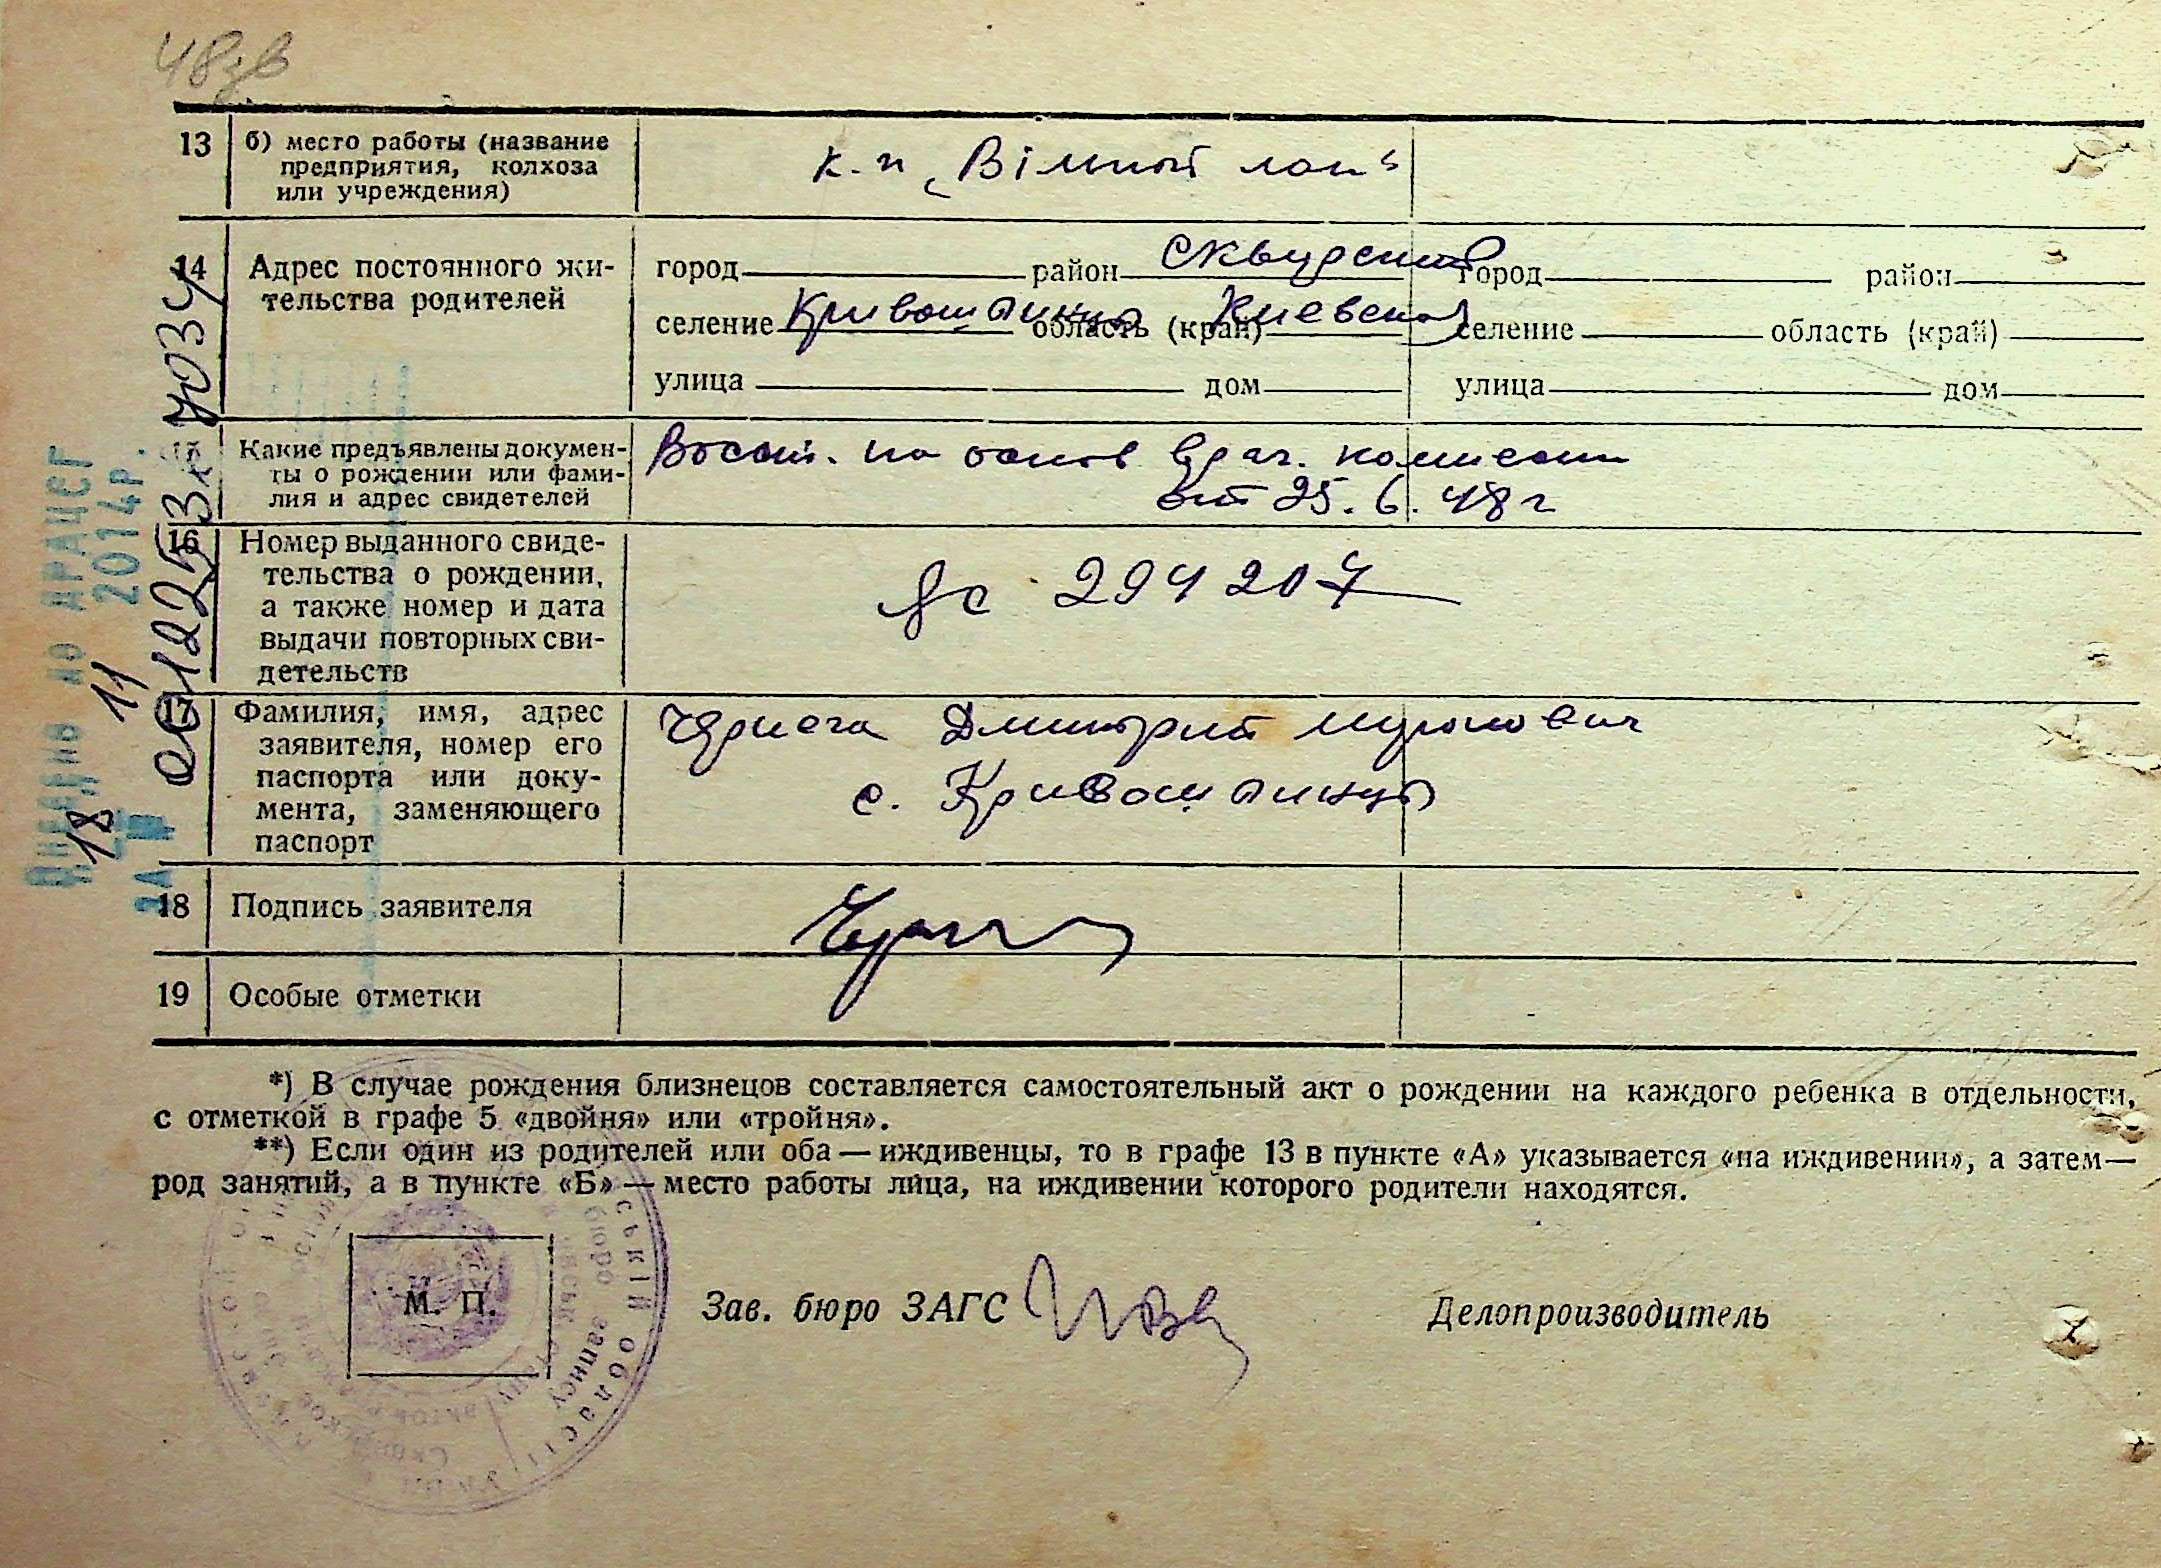 13 б) место работы (название
предприятия, колхоза
или учреждения)
к.п „Вільний лан“
14 Адрес постоянного жи-
тельства родителей
город район Сквирский
селение Кривошеинцы область (край) Киевская
улица дом
город район
селение область (край)
улица дом
Какие предъявлены докумен-
ты о рождении или фами-
лия и адрес свидетелей
Восст. на основ врач. комисии
от 25.6.48 г
16 Номер выданного свиде-
тельства о рождении,
а также номер и дата
выдачи повторных сви-
детельств
294207
17 Фамилия, имя, адрес
заявителя, номер его
паспорта или доку-
мента, заменяющего
паспорт
Дмитрий
с. Кривошеинцы
18 Подпись заявителя
19 Особые отметки
*) В случае рождения близнецов составляется самостоятельный акт о рождении на каждого ребенка в отдельности,
с отметкой в графе 5 «двойня» или «тройня».
**) Если один из родителей или оба — иждивенцы, то в графе 13 в пункте «А» указывается «на иждивении», а затем—
род занятий, а в пункте «Б» — место работы лица, на иждивении которого родители находятся.
М. П.
Зав. бюро ЗАГС
Делопроизводитель
ДРАЦСГ
18 11 2014р.
області
запису
бюро